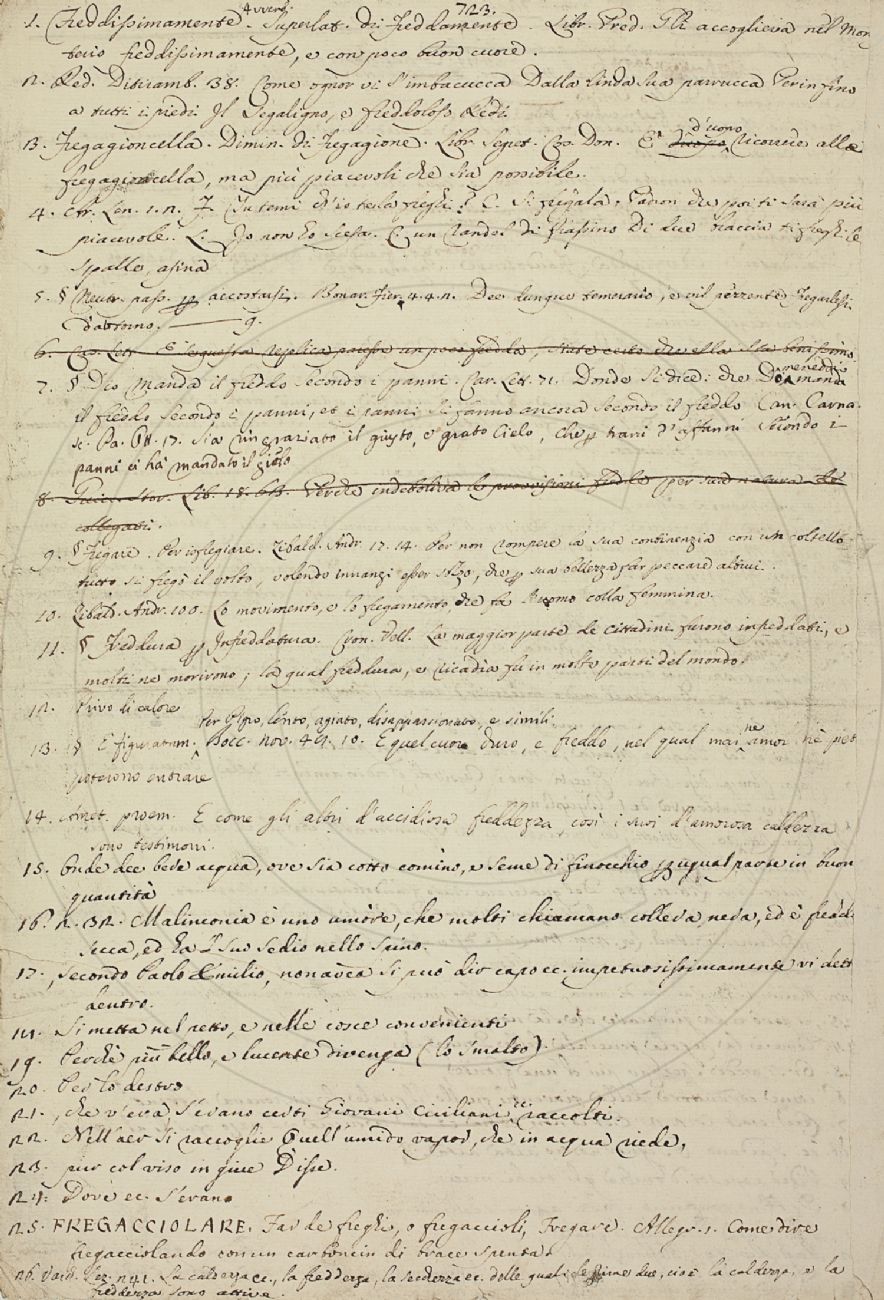 723.
Avverb.
1. Freddissimamente. Superlat. di Freddamente. Libr. Pred. Gli accoglieva nel Mon
terio freddissimamente, e con poco buon cuore.
2. Red. Ditiramb. 38. Come ognor vi s'imbacucca Dalla linda sua parrucca Perinfino
a tutti i piedi Il Segaligno, e freddoloso Redi.
d'uopo
3. Fregagioncella. Dimin. di Fregagione. Libr. Segret. Cos. Don. E' ricorrere alla
fregagioncella, ma più piacevoli che sia possibile.
4. Tu temi ch'io te la freghi? C. Si fregala, Padron che poi ti sarà più
piacevole. L. Io non ho scesa. C. un Randel di frassino Di due braccia ti freghi le
spalle, asina
5. § Neutr. pass. p accostarsi. Bonar. Fier. 4. 4. 12. Dee dunque temerario, e vil pezzente Fregarlesi
D'attorno. 9.
6. Car. Lett. E se questa replica paresse un poco fredda, state certo che ella sta benissimo
Domeneddio
7. § Dio manda il freddo secondo i panni. Car. Lett. 71. Donde si dice: che manda
il freddo secondo i panni, et i panni si fanno ancora secondo il freddo Can. Carna
sc. Pa. 17. Sia ringraziato il giusto, e grato Cielo, che p trarci d'affanni Secondo i
panni ci ha mandato il gielo
8. Guicc. Stor. Lib. 18. Perchè indeboliva le provvisioni fredde per sua natura de
collegati.
9. § Fregare. Per isfregiare. Zibald. Andr. 17. 14. Per non rompere la sua continenzia con un coltello
tutto si fregò il volto, volendo innanzi esser sozzo, che p sua bellezza far peccare altrui.
10. Zibald. Andr. 100. Lo movimento, e lo fregamento, che fa l'uomo colla femmina.
11. § Freddura p Infreddatura. Cron. Vell. La maggior parte de' cittadini furono infreddati, e
molti ne morirono; la qual freddura, e ricadia fu in molte parti del mondo.
12. Privo di calore
Per Pigro, lento, agiato, disappassionato, e simili.
13. § E figuratam. Bocc. nov. 49. 10. E quel cuore duro, e freddo, nel qual mai ne amor nè pet
poterono entrare
14. Amet. proem. E come gli altri d'accidiosa freddezza, così i suoi d'amorosa caldezza
sono testimoni.
15. Onde dee bere acqua, ove sia cotto comino, e seme di finocchio p ugual parte in buon
quantità
16. R. 32. Malinconia è uno umore, che molti chiamano collera nera, ed è fredd
secca, ed ha 'l suo sedio nello spino.
17. , secondo Paolo Emilio, non ancora si può dir capo ec. impetuosissimamente vi dett
dentro.
18. Si metta nel petto, e nelle cosce convenienti
19. Perchè più bello, e lucente divenga (lo smalto)
20. Per lo destro
21. , che v'era S'erano certi Giovani Ciciliani ec. raccolti.
22. Nell'aer si raccoglie Quell'umido vapor, che in acqua riede,
23. pur col viso in giue Disse.
24. Dove ec. s'erano
25. FREGACCIOLARE. Far de freghi, o fregaccioli, Fregare. Allegr. 1. Come dire
fregacciolando con un carboncin di brace spenta
26. Varch. Lez. 241. La caldezza ec., la freddezza, la secchezza ec. delle quali le prime due, cioè la caldezza, e la
freddezza sono attive.